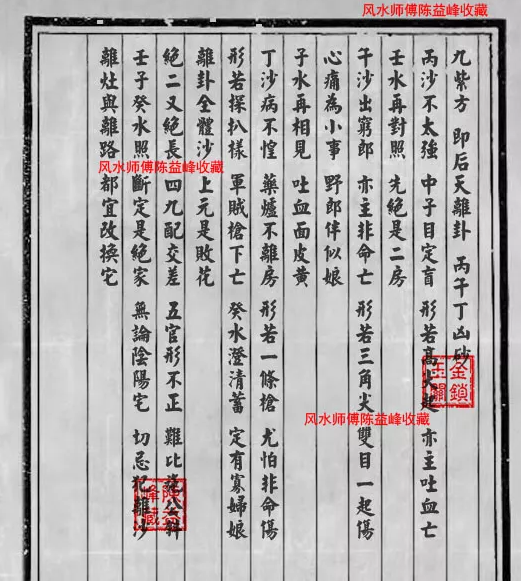 风水师傅陈益峰收藏
九紫方 即后天離卦 丙午丁凶砂
丙沙不太強 中子目定盲 形若高尖起 亦主吐血亡
壬水再對照 先絕是二房
午沙出窮郎 亦主非命亡 形若三角尖 雙目一起傷
心痛為小事 野郎伴似娘
子水再相見 吐血面皮黃
丁沙病不惶 藥爐不離房 形若一條槍 尤怕非命傷
形若探扒樣 軍賊槍下亡 癸水澄清蓄 定有寡婦娘
離卦全體沙 上元是敗花
絕二又絕長 四九配交差 五官形不正 難比斜
壬子癸水照 斷定是絕家 無論陰陽宅 切忌犯離沙
離灶與離路 都宜改換宅
风水师傅陈益峰收藏
风水师傅陈益峰收藏
金鎖
玉關
陳益
峰藏